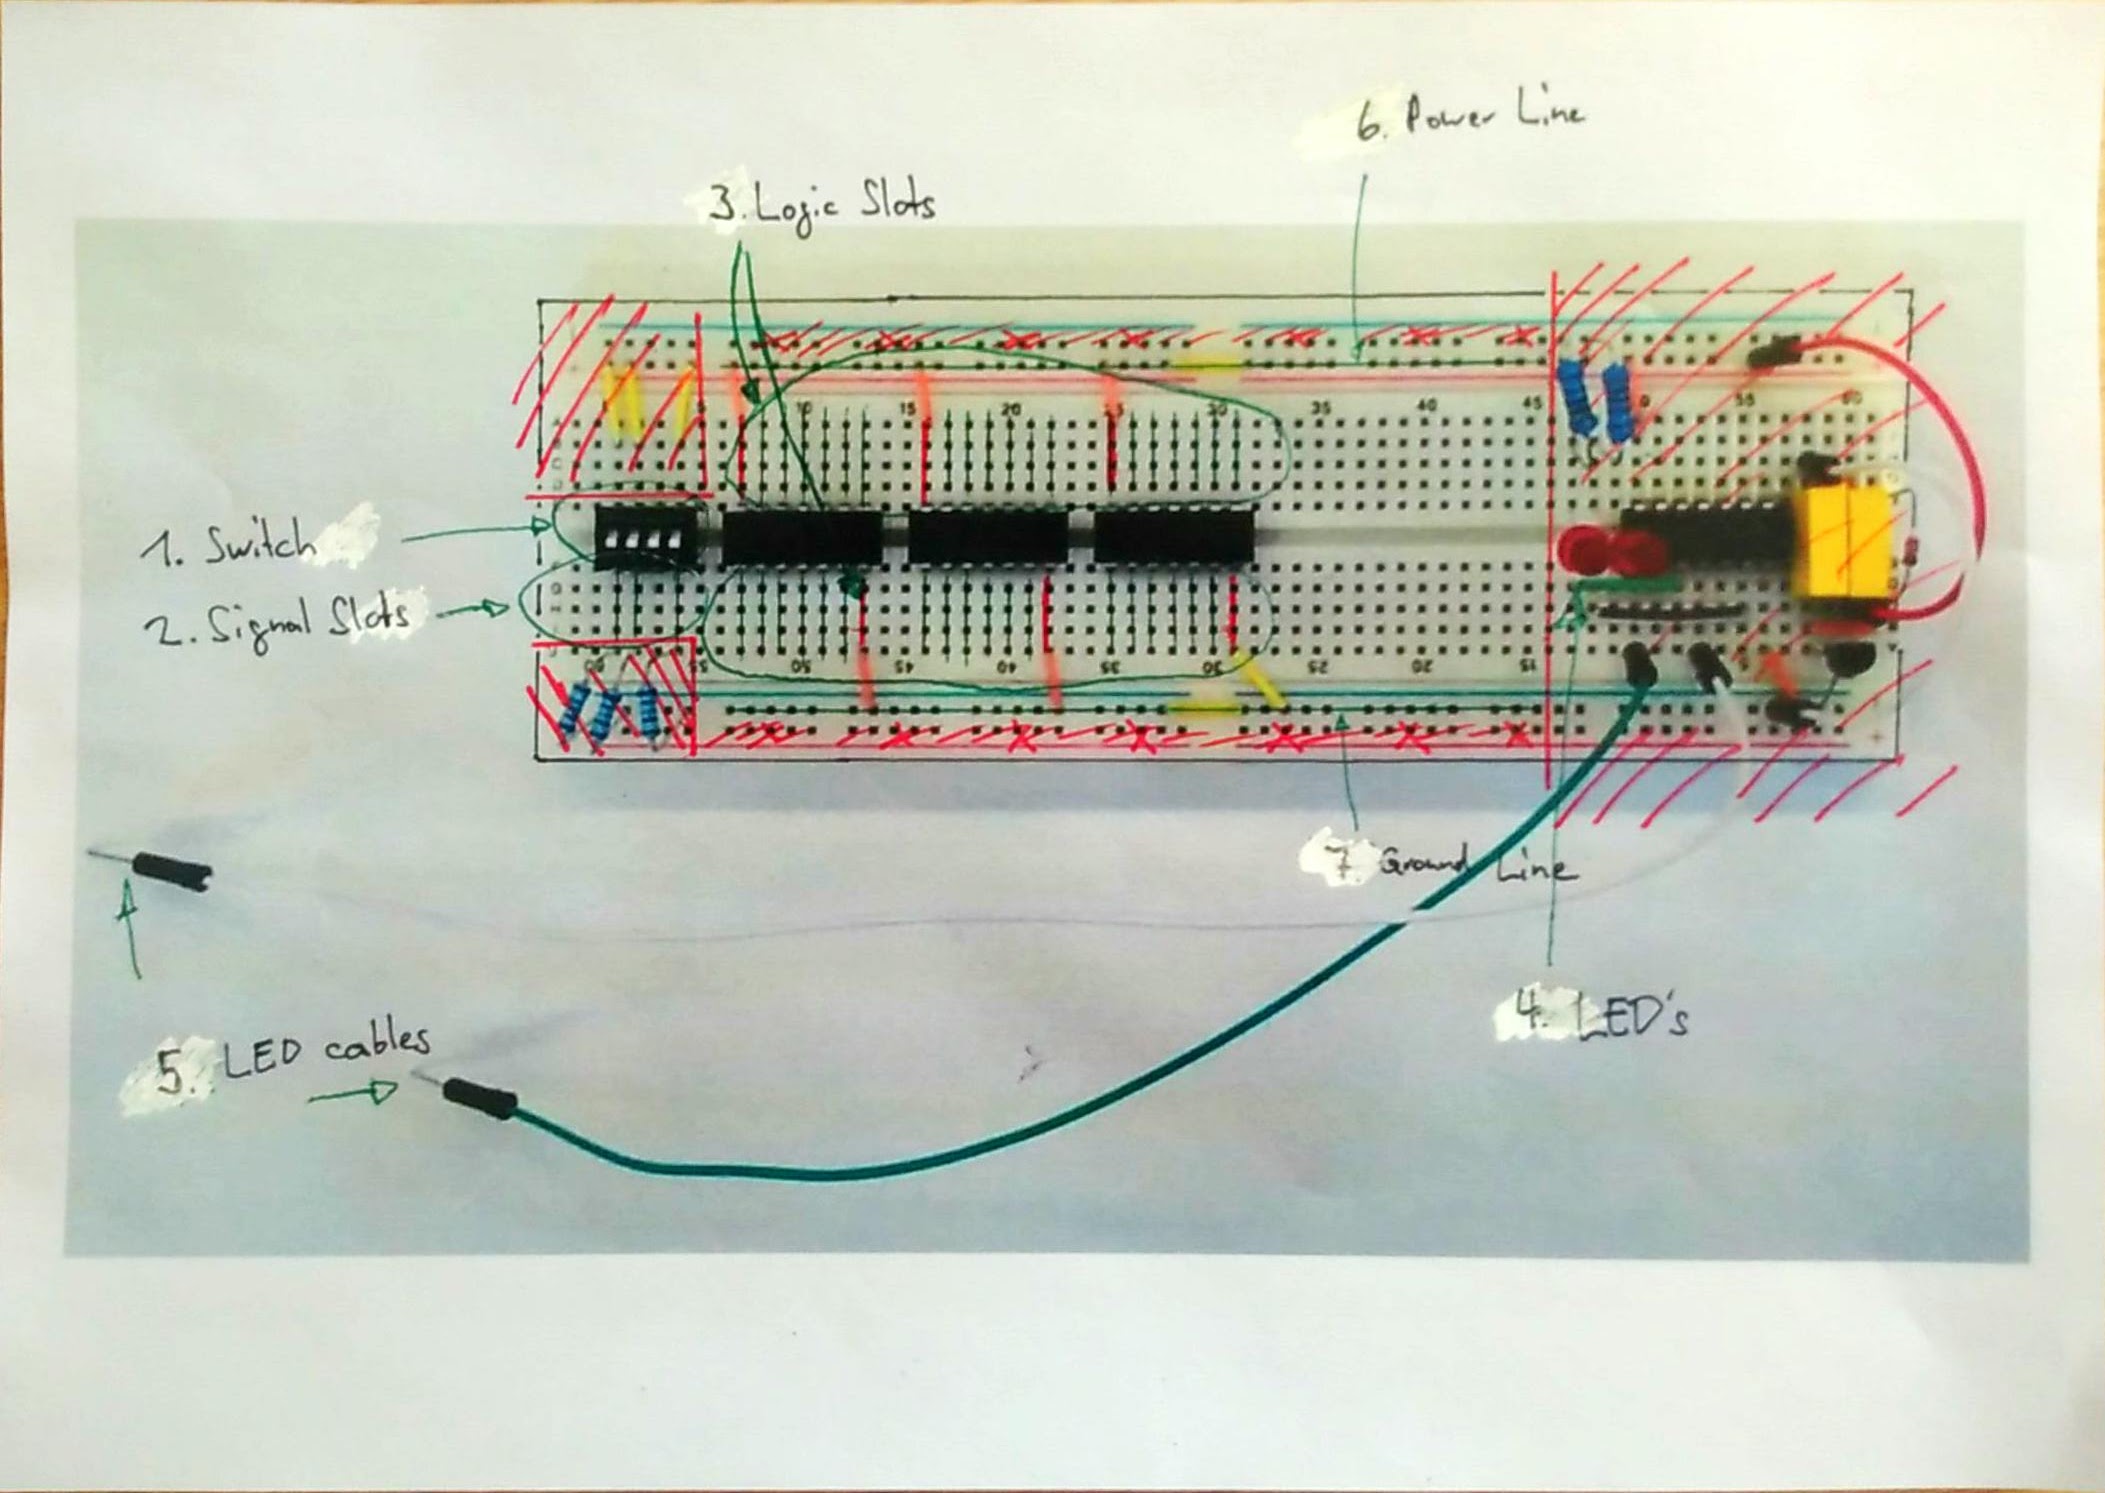 6. Power Line
3. Logic Slots
10 15 20 25 30 35 40 45 55 60
1. Switch
2. Signal Slots
60 55 50 45 40 35 30 25 20 15
7. Ground Line
4. LED's
5. LED cables